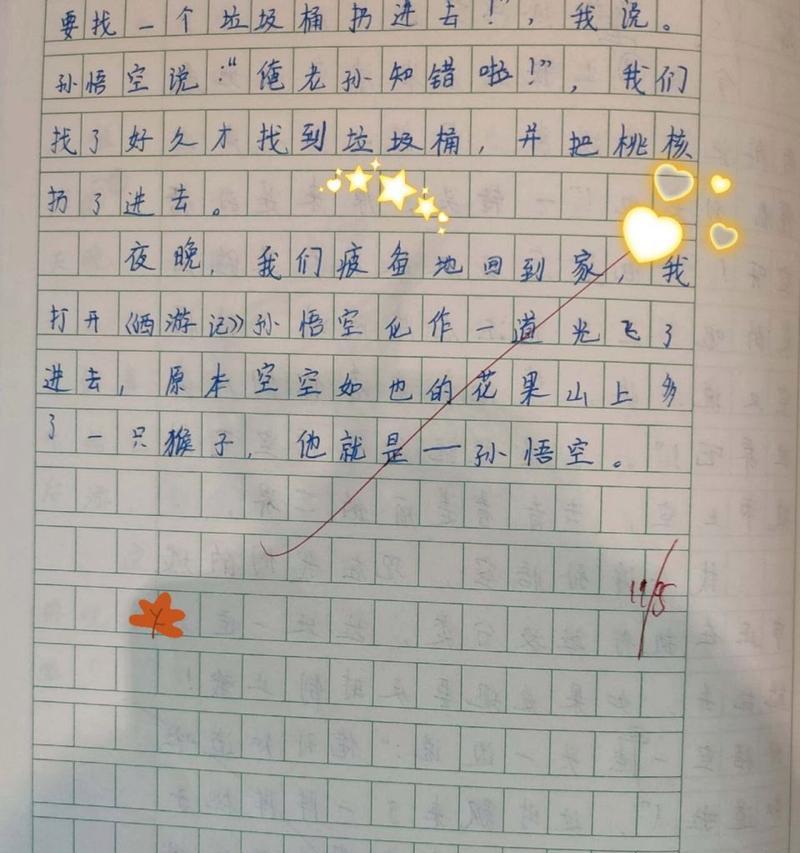 要找一个垃圾桶扔进去！”，我说。
孙悟空说：“俺老孙知错啦！”，我们
找了好久才找到垃圾桶，并把桃核
扔了进去。
夜晚，我们疲备地回到家，我
打开《西游记》孙悟空化作一道光飞了
进去，原本空空如也的花果山上多
了一只猴子，他就是——孙悟空。
11/5